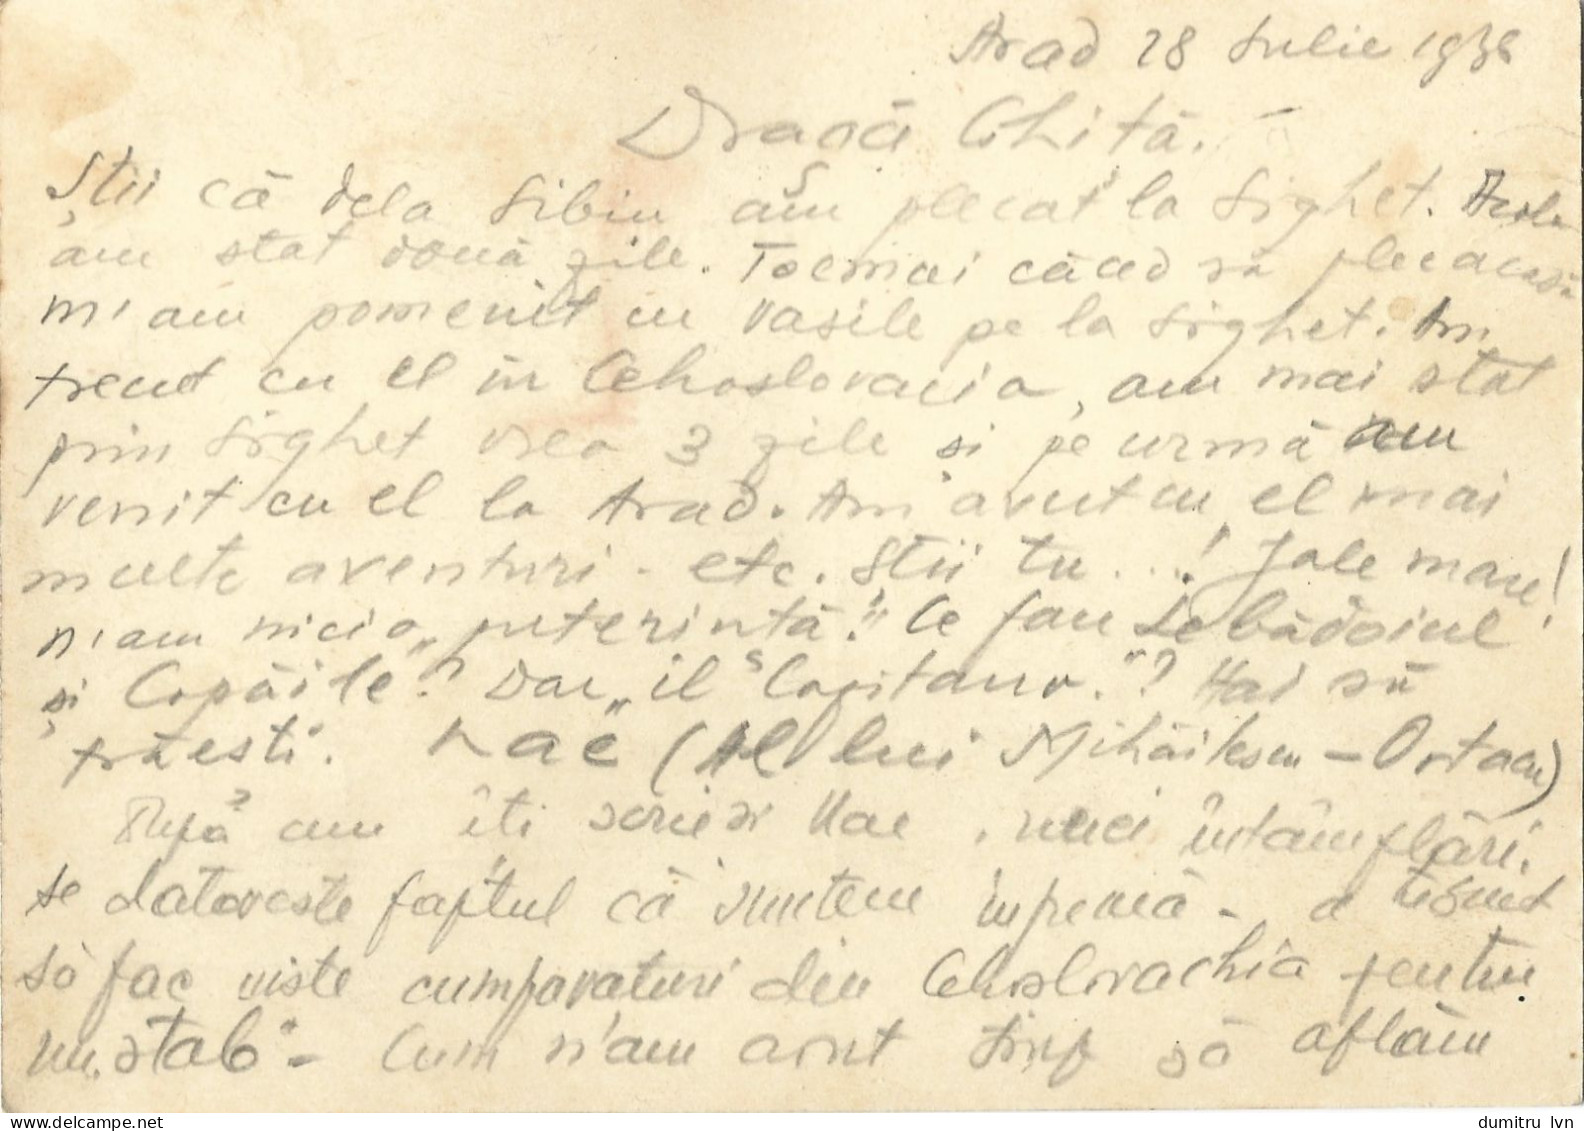 Arad 28 Iulie 1938
Dragă Ghiță.
Știi că dela Sibiu am plecat la Sighet. Acolo
am stat două zile. Tocmai când să plec acasă
m'am pomenit cu Vasile pe la Sighet. Am
trecut cu el în Cehoslovacia, am mai stat
prin Sighet vreo 3 zile și pe urmă am
venit cu el la Arad. Am avut cu el mai
multe aventuri - etc. Știi tu ...! Jale mare!
n'am nicio „puterință". Ce fac Lebădoiul
și Copăile? Dar „il Capitano."? Hai să
trăești. Lae (Al lui Mihăilescu - Ortacu)
După cum îți scrie și Nae, unei întâmplări.
se datorește faptul că suntem împreună - a
să fac niște cumpărături din Cehoslovachia pentru
un „stab" - Cum n'am avut timp să aflăm
dumitru lvn